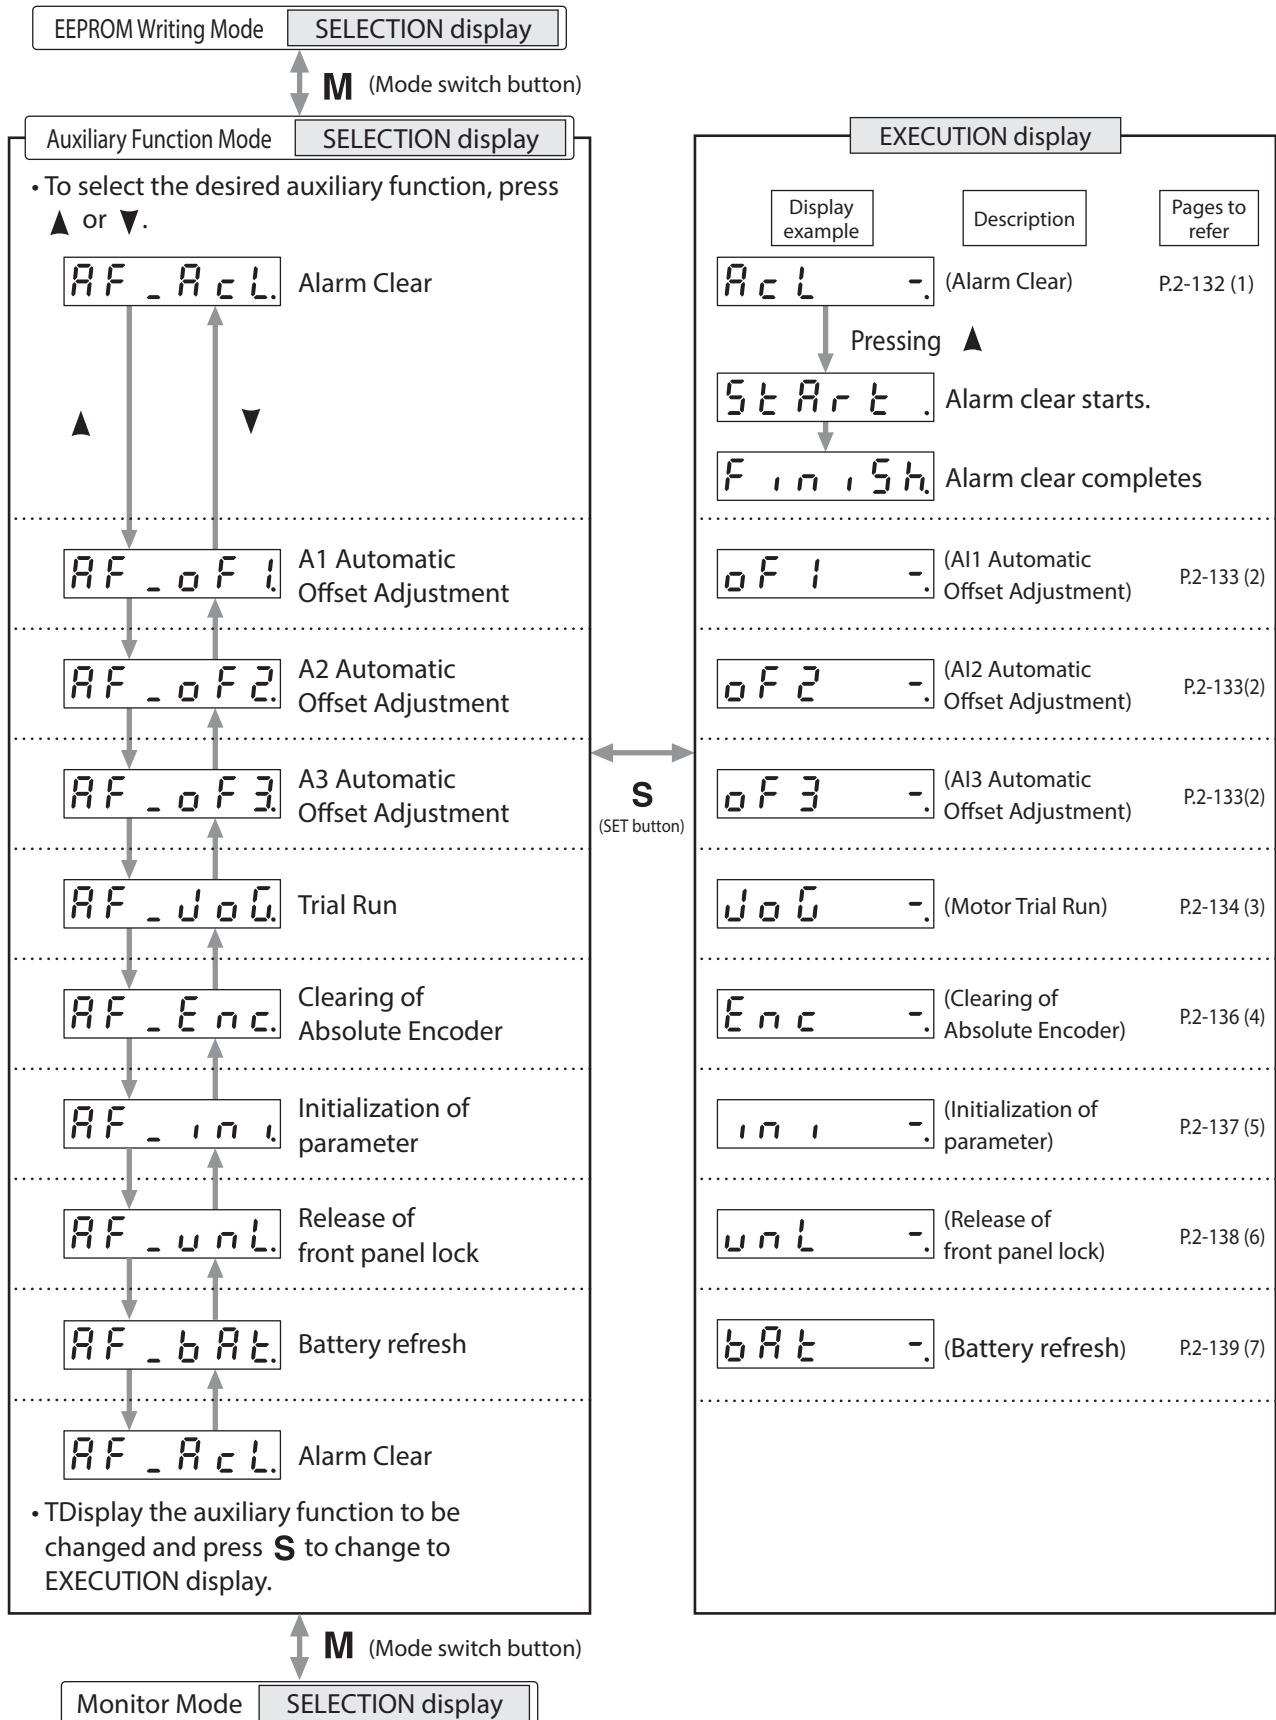 EEPROM Writing Mode SELECTION display
M (Mode switch button)
Auxiliary Function Mode SELECTION display
• To select the desired auxiliary function, press
▲ or ▼.
AF_AcL. Alarm Clear
▲ ▼
AF_oF1. A1 Automatic
Offset Adjustment
AF_oF2. A2 Automatic
Offset Adjustment
AF_oF3. A3 Automatic
Offset Adjustment
AF_JoG. Trial Run
AF_Enc. Clearing of
Absolute Encoder
AF_ini. Initialization of
parameter
AF_unL. Release of
front panel lock
AF_bAt. Battery refresh
AF_AcL. Alarm Clear
• TDisplay the auxiliary function to be
changed and press S to change to
EXECUTION display.
M (Mode switch button)
Monitor Mode SELECTION display
S
(SET button)
EXECUTION display
Display
example
Description
Pages to
refer
AcL -. (Alarm Clear) P.2-132 (1)
Pressing ▲
StArt . Alarm clear starts.
FiniSh. Alarm clear completes
oF1 -. (AI1 Automatic
Offset Adjustment) P.2-133 (2)
oF2 -. (AI2 Automatic
Offset Adjustment) P.2-133(2)
oF3 -. (AI3 Automatic
Offset Adjustment) P.2-133(2)
JoG -. (Motor Trial Run) P.2-134 (3)
Enc -. (Clearing of
Absolute Encoder) P.2-136 (4)
ini -. (Initialization of
parameter) P.2-137 (5)
unL -. (Release of
front panel lock) P.2-138 (6)
bAt -. (Battery refresh) P.2-139 (7)